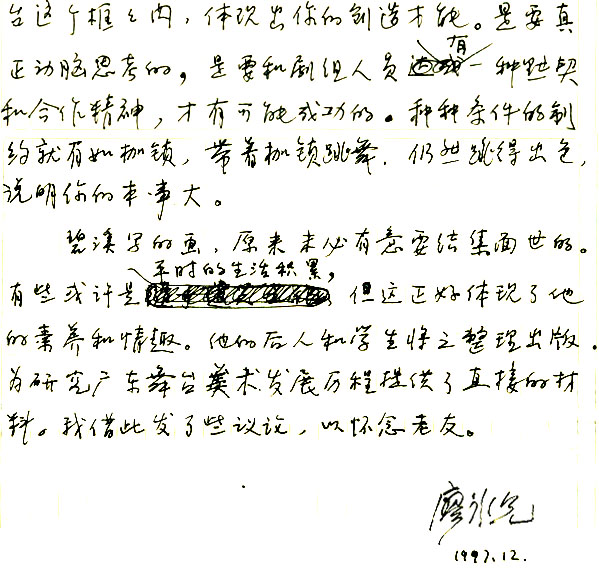 台这个框之内，体现出你的创造才能。是要真
正动脑思考的，是要和剧组人员有一种默契
和合作精神，才有可能成功的。种种条件的制
约就有如枷锁，带着枷锁跳舞，仍然跳得出色，
说明你的本事大。
碧溪写的画，原来未必有意要结集面世的。
有些或许是平时的生活积累，但这正好体现了他
的素养和情趣。他的后人和学生将之整理出版，
为研究广东舞台美术发展历程提供了直接的材
料。我借此发了些议论，以怀念老友。
1997.12.